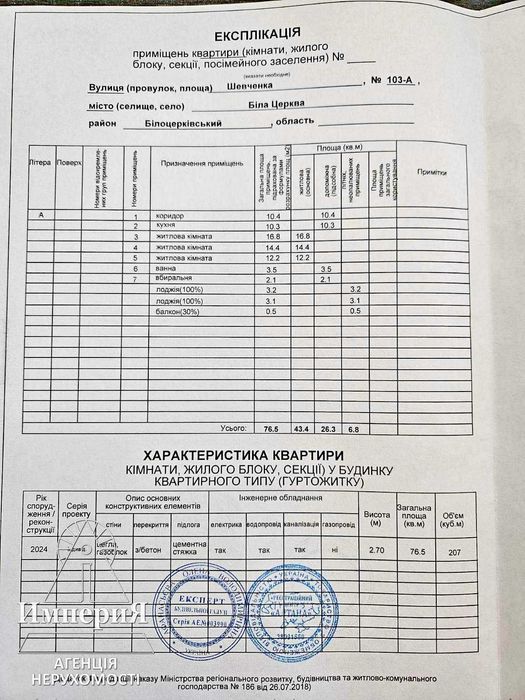 ЕКСПЛІКАЦІЯ
приміщень квартири (кімнати, жилого
блоку, секції, посімейного заселення) №
(вказати необхідне)
Вулиця (провулок, площа) Шевченка , № 103-А ,
місто (селище, село) Біла Церква
район Білоцерківський , область
Літера Поверх Номери приміщень Призначення приміщень Загальна площа приміщень, підрахована за формулами розрахунку площ (м2) Площа (кв.м) житлова (основна) допоміжна (підсобна) літніх, неопалюваних приміщень Площа приміщень загального користування Примітки
А 1 коридор 10.4 10.4
2 кухня 10.3 10.3
3 житлова кімната 16.8 16.8
4 житлова кімната 14.4 14.4
5 житлова кімната 12.2 12.2
6 ванна 3.5 3.5
7 вбиральня 2.1 2.1
лоджія(100%) 3.2 3.2
лоджія(100%) 3.1 3.1
балкон(30%) 0.5 0.5
Усього: 76.5 43.4 26.3 6.8
ХАРАКТЕРИСТИКА КВАРТИРИ
КІМНАТИ, ЖИЛОГО БЛОКУ, СЕКЦІЇ) У БУДИНКУ
КВАРТИРНОГО ТИПУ (ГУРТОЖИТКУ)
Рік споруд- ження / рекон- струкції Серія проекту Опис основних конструктивних елементів Інженерне обладнання Висота (м) Загальна площа (кв.м) Об'єм (куб.м)
стіни перекриття підлога електрика водопровід каналізація газопровід
2024 цегла, газоблок з/бетон цементна стяжка так так так ні 2.70 76.5 207
ЕКСПЕРТ
Серія АЕ №003990
УКРАЇНА
Империя
АГЕНЦІЯ
НЕРУХОМОСТІ
наказу Міністерства регіонального розвитку, будівництва та житлово-комунального
господарства № 186 від 26.07.2018)